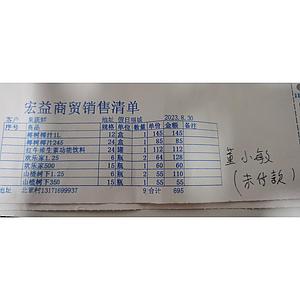 宏益商贸销售清单
客户 果蔬鲜 地址 假日丽城 2023.8.30
序号 商品 规格 单位 数量 单价 金额 备注
1 椰树椰汁1L 12 盒 1 145 145
2 椰树椰汁245 24 盒 1 85 85
3 红牛维生素功能饮料 24 罐 1 112 112
4 欢乐家1.25 6 瓶 2 64 128
5 欢乐家500 15 瓶 1 60 60
6 山楂树下1.25 6 瓶 2 55 110
7 山楂树下350 15 瓶 1 55 55
地址 北 村13171699937 9 合计 695
董小敏
(未付款)